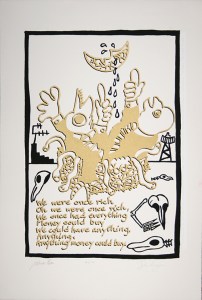 We were once rich
Oh we were once rich,
We once had everything
Money could buy
We could have anything,
Anything,
Anything money could buy.